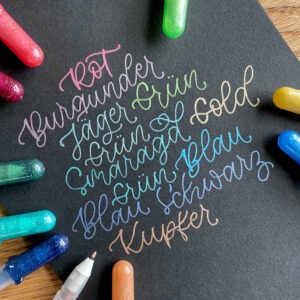 Rot
Burgunder
Jäger Grün
Grün & Gold
Smaragd
Grün Blau
Blau Schwarz
Kupfer